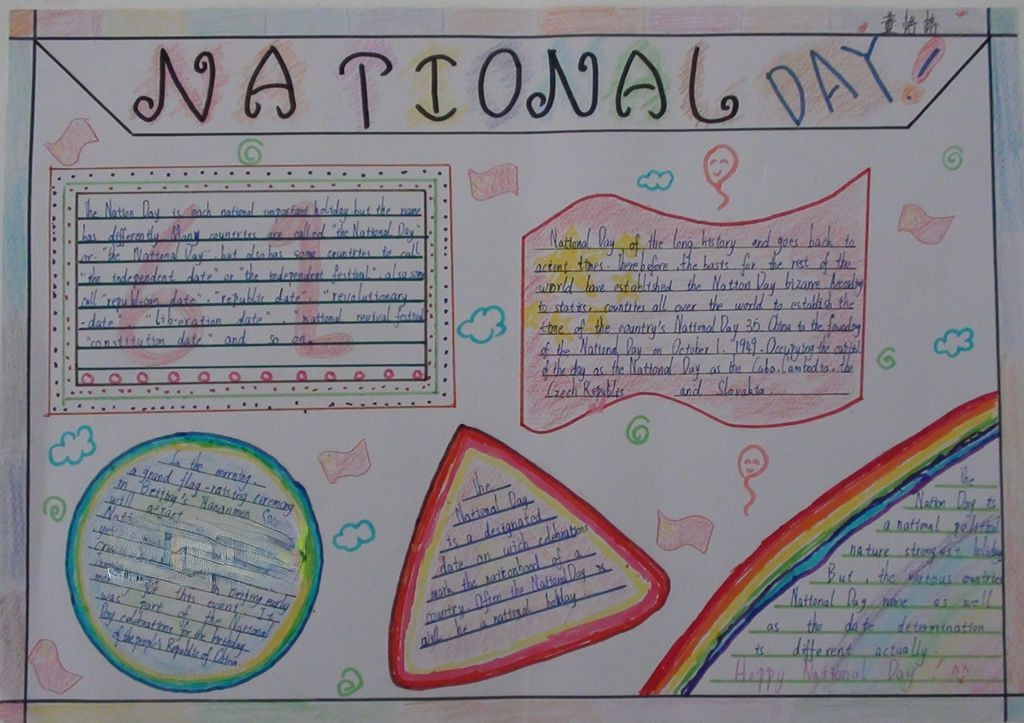 NATIONAL DAY!
The Nation Day is each national important holiday but the name
has differently. Many countries are called "the National Day"
or "the National Day". but also has some countries to call
"the independent date" or "the independent festival". also some
call "republican date". "republic date". "revolutionary
date". "Lib-eration date". national revival festival
"constitution date" and so on.
National Day, of the long history and goes back to
times. Therebefore, the basis for the rest of the
world have established the Nation Day bizarre According
to statics, countries all over the world to establish the
time of the country's National Day 35 China to the founding
of the National Day on October 1. 1949. Occupying the capital
of the day as the National Day as the Cuba, Lambodia, the
Czech Republis and Slovakia.
In the morning,
a grand flag-raising ceremony
in Beijing's
will attract
in Beijing early
for this event. It
was part of the National
Day celebrations for the birthday
of the people's Republic of China.
The
National Day
is a designated
date on wich celebrations
mark the nationhood of a
country. Often the National Day is
will be a national holiday
The
Nation Day is
a national
nature strongest holiday
But, the various countries
National Day name as well
as the date determination
is different actually.
Happy National Day!